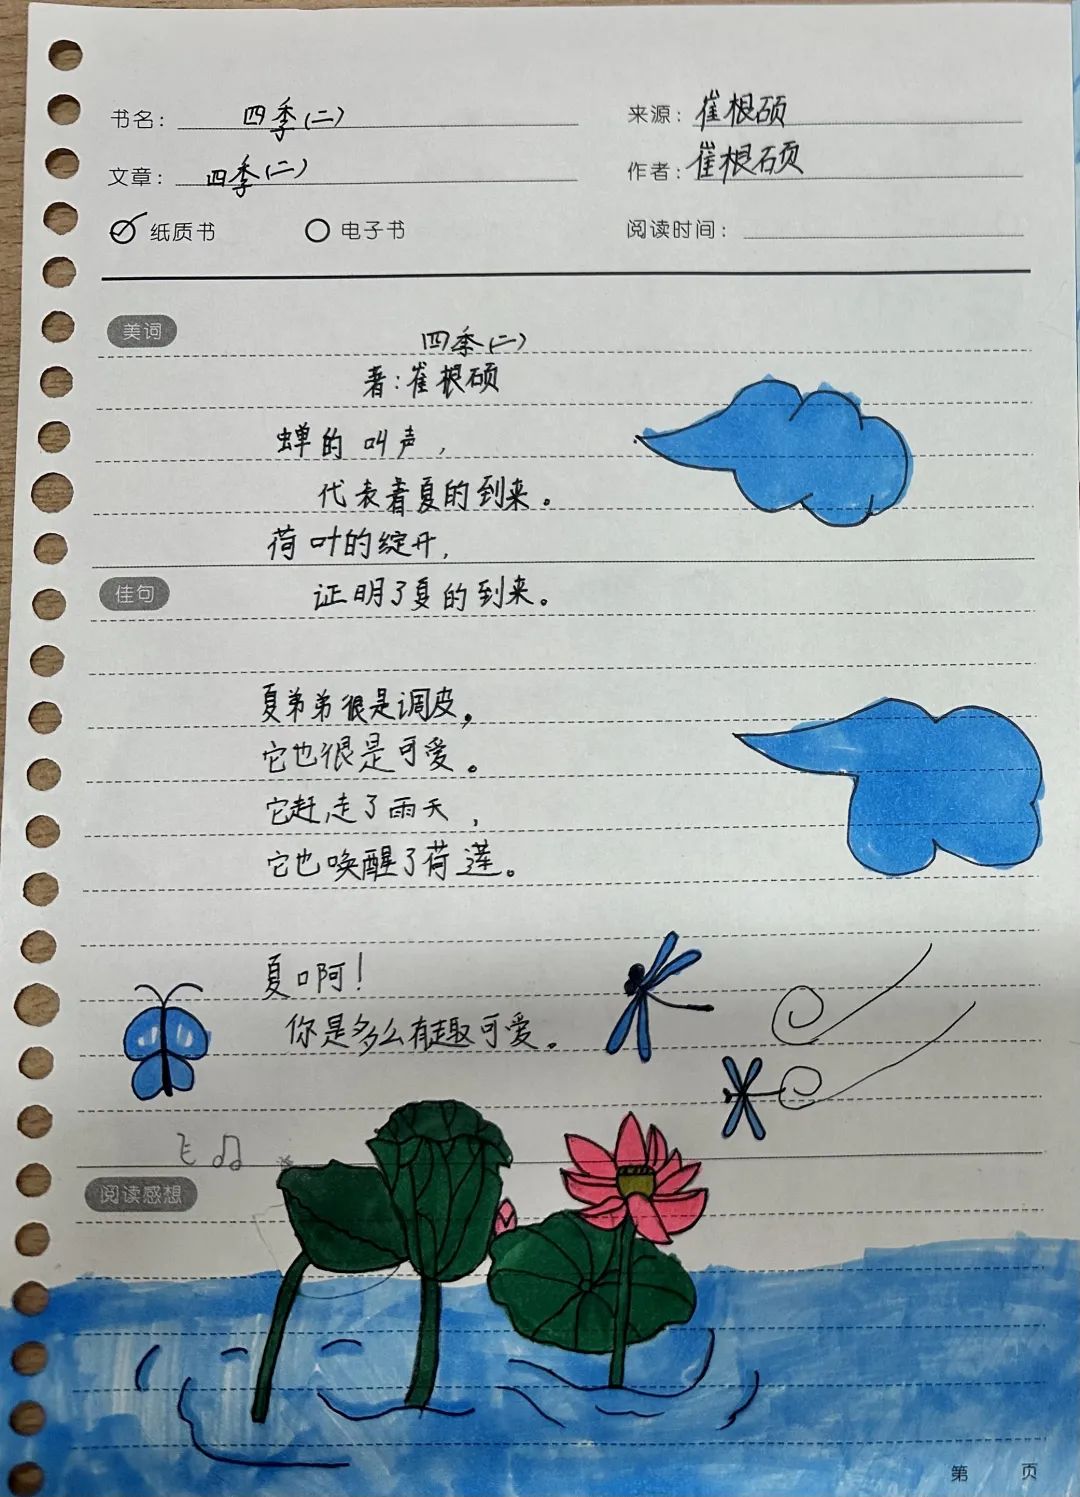 书名： 四季(二)
来源： 崔根硕
文章： 四季(二)
作者： 崔根硕
纸质书
电子书
阅读时间：
美词
四季(二)
著：崔根硕
蝉的叫声，
代表着夏的到来。
荷叶的绽开，
佳句
证明了夏的到来。
夏弟弟很是调皮，
它也很是可爱。
它赶走了雨天，
它也唤醒了荷莲。
夏啊！
你是多么有趣可爱。
阅读感想
第 页